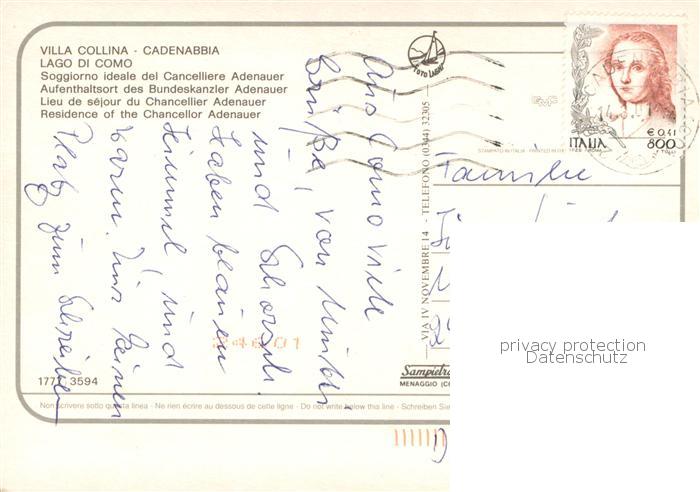 VILLA COLLINA - CADENABBIA
LAGO DI COMO
Soggiorno ideale del Cancelliere Adenauer
Aufenthaltsort des Bundeskanzler Adenauer
Lieu de séjour du Chancellier Adenauer
Residence of the Chancellor Adenauer
FOTO LAGHI
€ 0,41
800
ITALIA
STAMPATO IN ITALIA - PRINTED IN
VIA IV NOVEMBRE 14 - TELEFONO (0344) 32305
Aus Como viele
Grüße, von
und
Haben blauen
Himmel, und
warm. Nur keinen
Platz zum Schreiben
Familie
24 6 01
privacy protection
Datenschutz
1771 3594
MENAGGIO
Non scrivere sotto questa linea - Ne rien écrire au dessous de cette ligne - Do not write below this line - Schreiben Sie